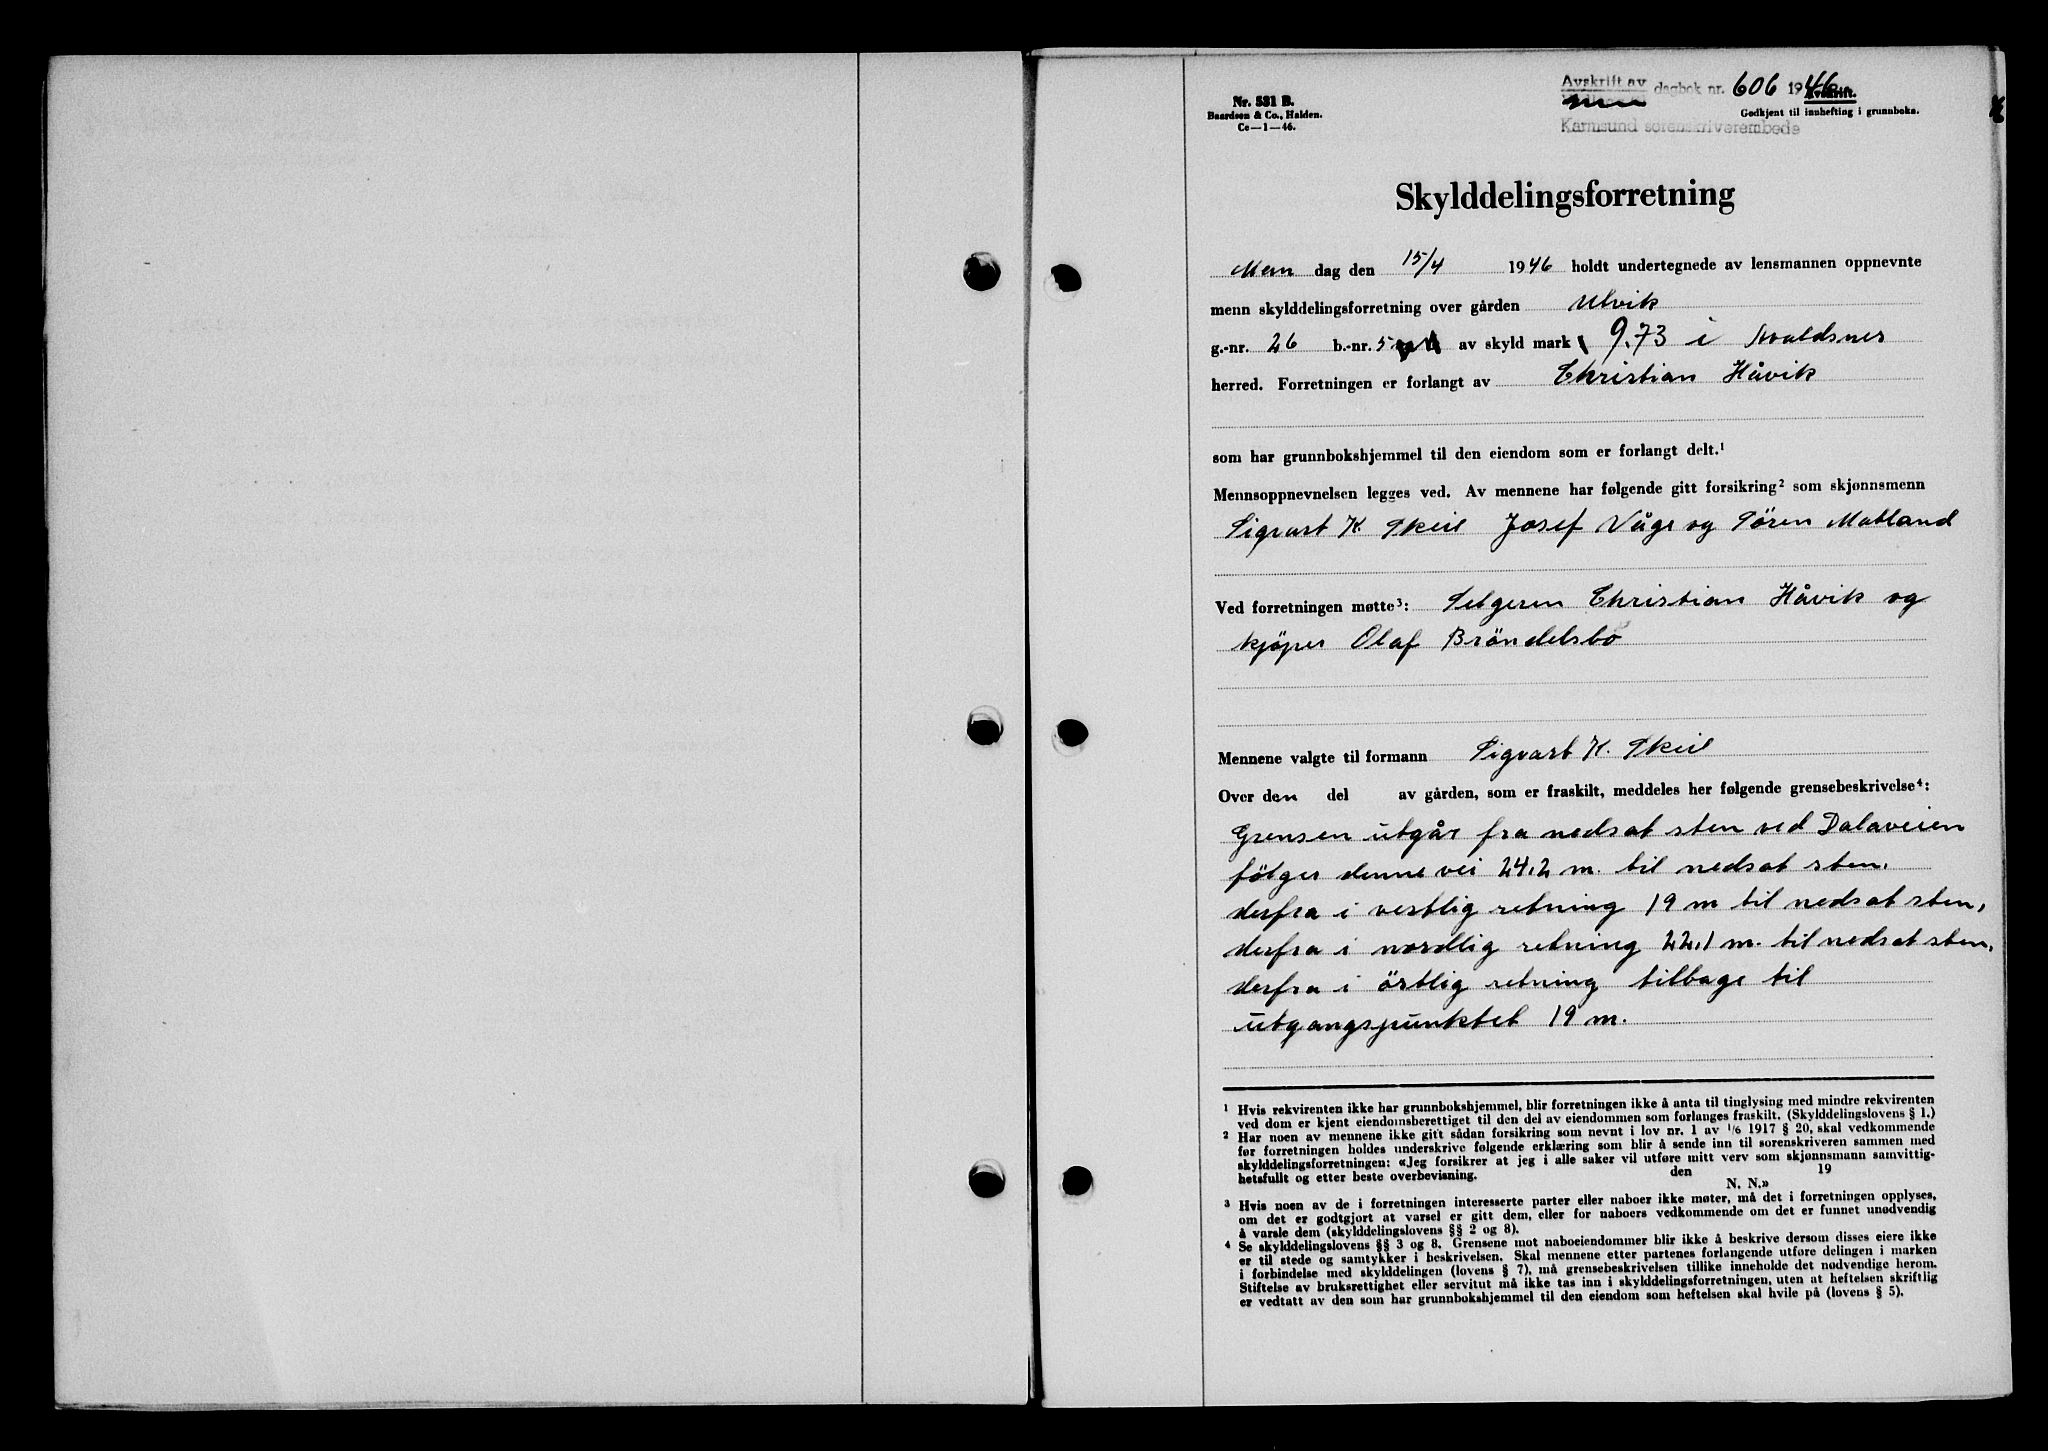 Nr. 581 B.
Baardsen & Co., Halden.
Ce—1—46.
Avskrift av dagbok nr. 606 1946
Avskrift.
Godkjent til innhefting i grunnboka.
Karmsund sorenskriverembede
Skylddelingsforretning
Man dag den 15/4 1946 holdt undertegnede av lensmannen oppnevnte
menn skylddelingsforretning over gården Ulvik
g.-nr. 26 b.-nr. 5 av skyld mark 9.73 i Avaldsnes
herred. Forretningen er forlangt av Christian Håvik
som har grunnbokshjemmel til den eiendom som er forlangt delt.¹
Mennsoppnevnelsen legges ved. Av mennene har følgende gitt forsikring² som skjønnsmenn
Sigvart K. Skeie Josef Våge og Sören Matland
Ved forretningen møtte³: Selgeren Christian Håvik og
kjöper Olaf Bröndelsbo
Mennene valgte til formann Sigvart K. Skeie
Over den del av gården, som er fraskilt, meddeles her følgende grensebeskrivelse⁴:
Grensen utgår fra nedsat sten ved Dalaveien
fölger denne vei 24,2 m. til nedsat sten,
derfra i vestlig retning 19 m til nedsat sten,
derfra i nordlig retning 22,1 m. til nedsat sten,
derfra i östlig retning tilbage til
utgangspunktet 19 m.
¹ Hvis rekvirenten ikke har grunnbokshjemmel, blir forretningen ikke å anta til tinglysing med mindre rekvirenten
ved dom er kjent eiendomsberettiget til den del av eiendommen som forlanges fraskilt. (Skylddelingslovens § 1.)
² Har noen av mennene ikke gitt sådan forsikring som nevnt i lov nr. 1 av 1/6 1917 § 20, skal vedkommende
før forretningen holdes underskrive følgende erklæring som blir å sende inn til sorenskriveren sammen med
skylddelingsforretningen: «Jeg forsikrer at jeg i alle saker vil utføre mitt verv som skjønnsmann samvittig-
hetsfullt og etter beste overbevisning. den 19
N. N.»
³ Hvis noen av de i forretningen interesserte parter eller naboer ikke møter, må det i forretningen opplyses,
om det er godtgjort at varsel er gitt dem, eller for naboers vedkommende om det er funnet unødvendig
å varsle dem (skylddelingslovens §§ 2 og 8).
⁴ Se skylddelingslovens §§ 3 og 8. Grensene mot naboeiendommer blir ikke å beskrive dersom disses eiere ikke
er til stede og samtykker i beskrivelsen. Skal mennene etter partenes forlangende utføre delingen i marken
i forbindelse med skylddelingen (lovens § 7), må grensebeskrivelsen tillike inneholde det nødvendige herom.
Stiftelse av bruksrettighet eller servitut må ikke tas inn i skylddelingsforretningen, uten at heftelsen skriftlig
er vedtatt av den som har grunnbokshjemmel til den eiendom som heftelsen skal hvile på (lovens § 5).